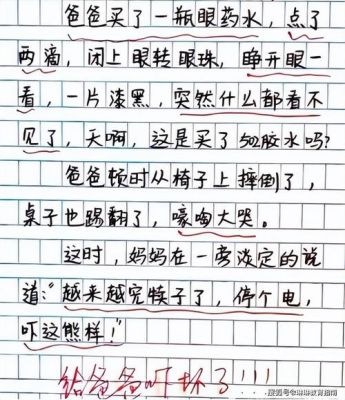 爸爸买了一瓶眼药水，点了
两滴，闭上眼转眼珠，睁开眼一
看，一片漆黑，突然什么都看不
见了，天啊，这是买了502胶水吗？
爸爸顿时从椅子上摔倒了，
桌子也踢翻了，嚎啕大哭。
这时，妈妈在一旁淡定的说
道："越来越完犊子了，停个电，
吓这熊样！"
给爸爸吓坏了！！！
搜狐号@琳琳教育指南